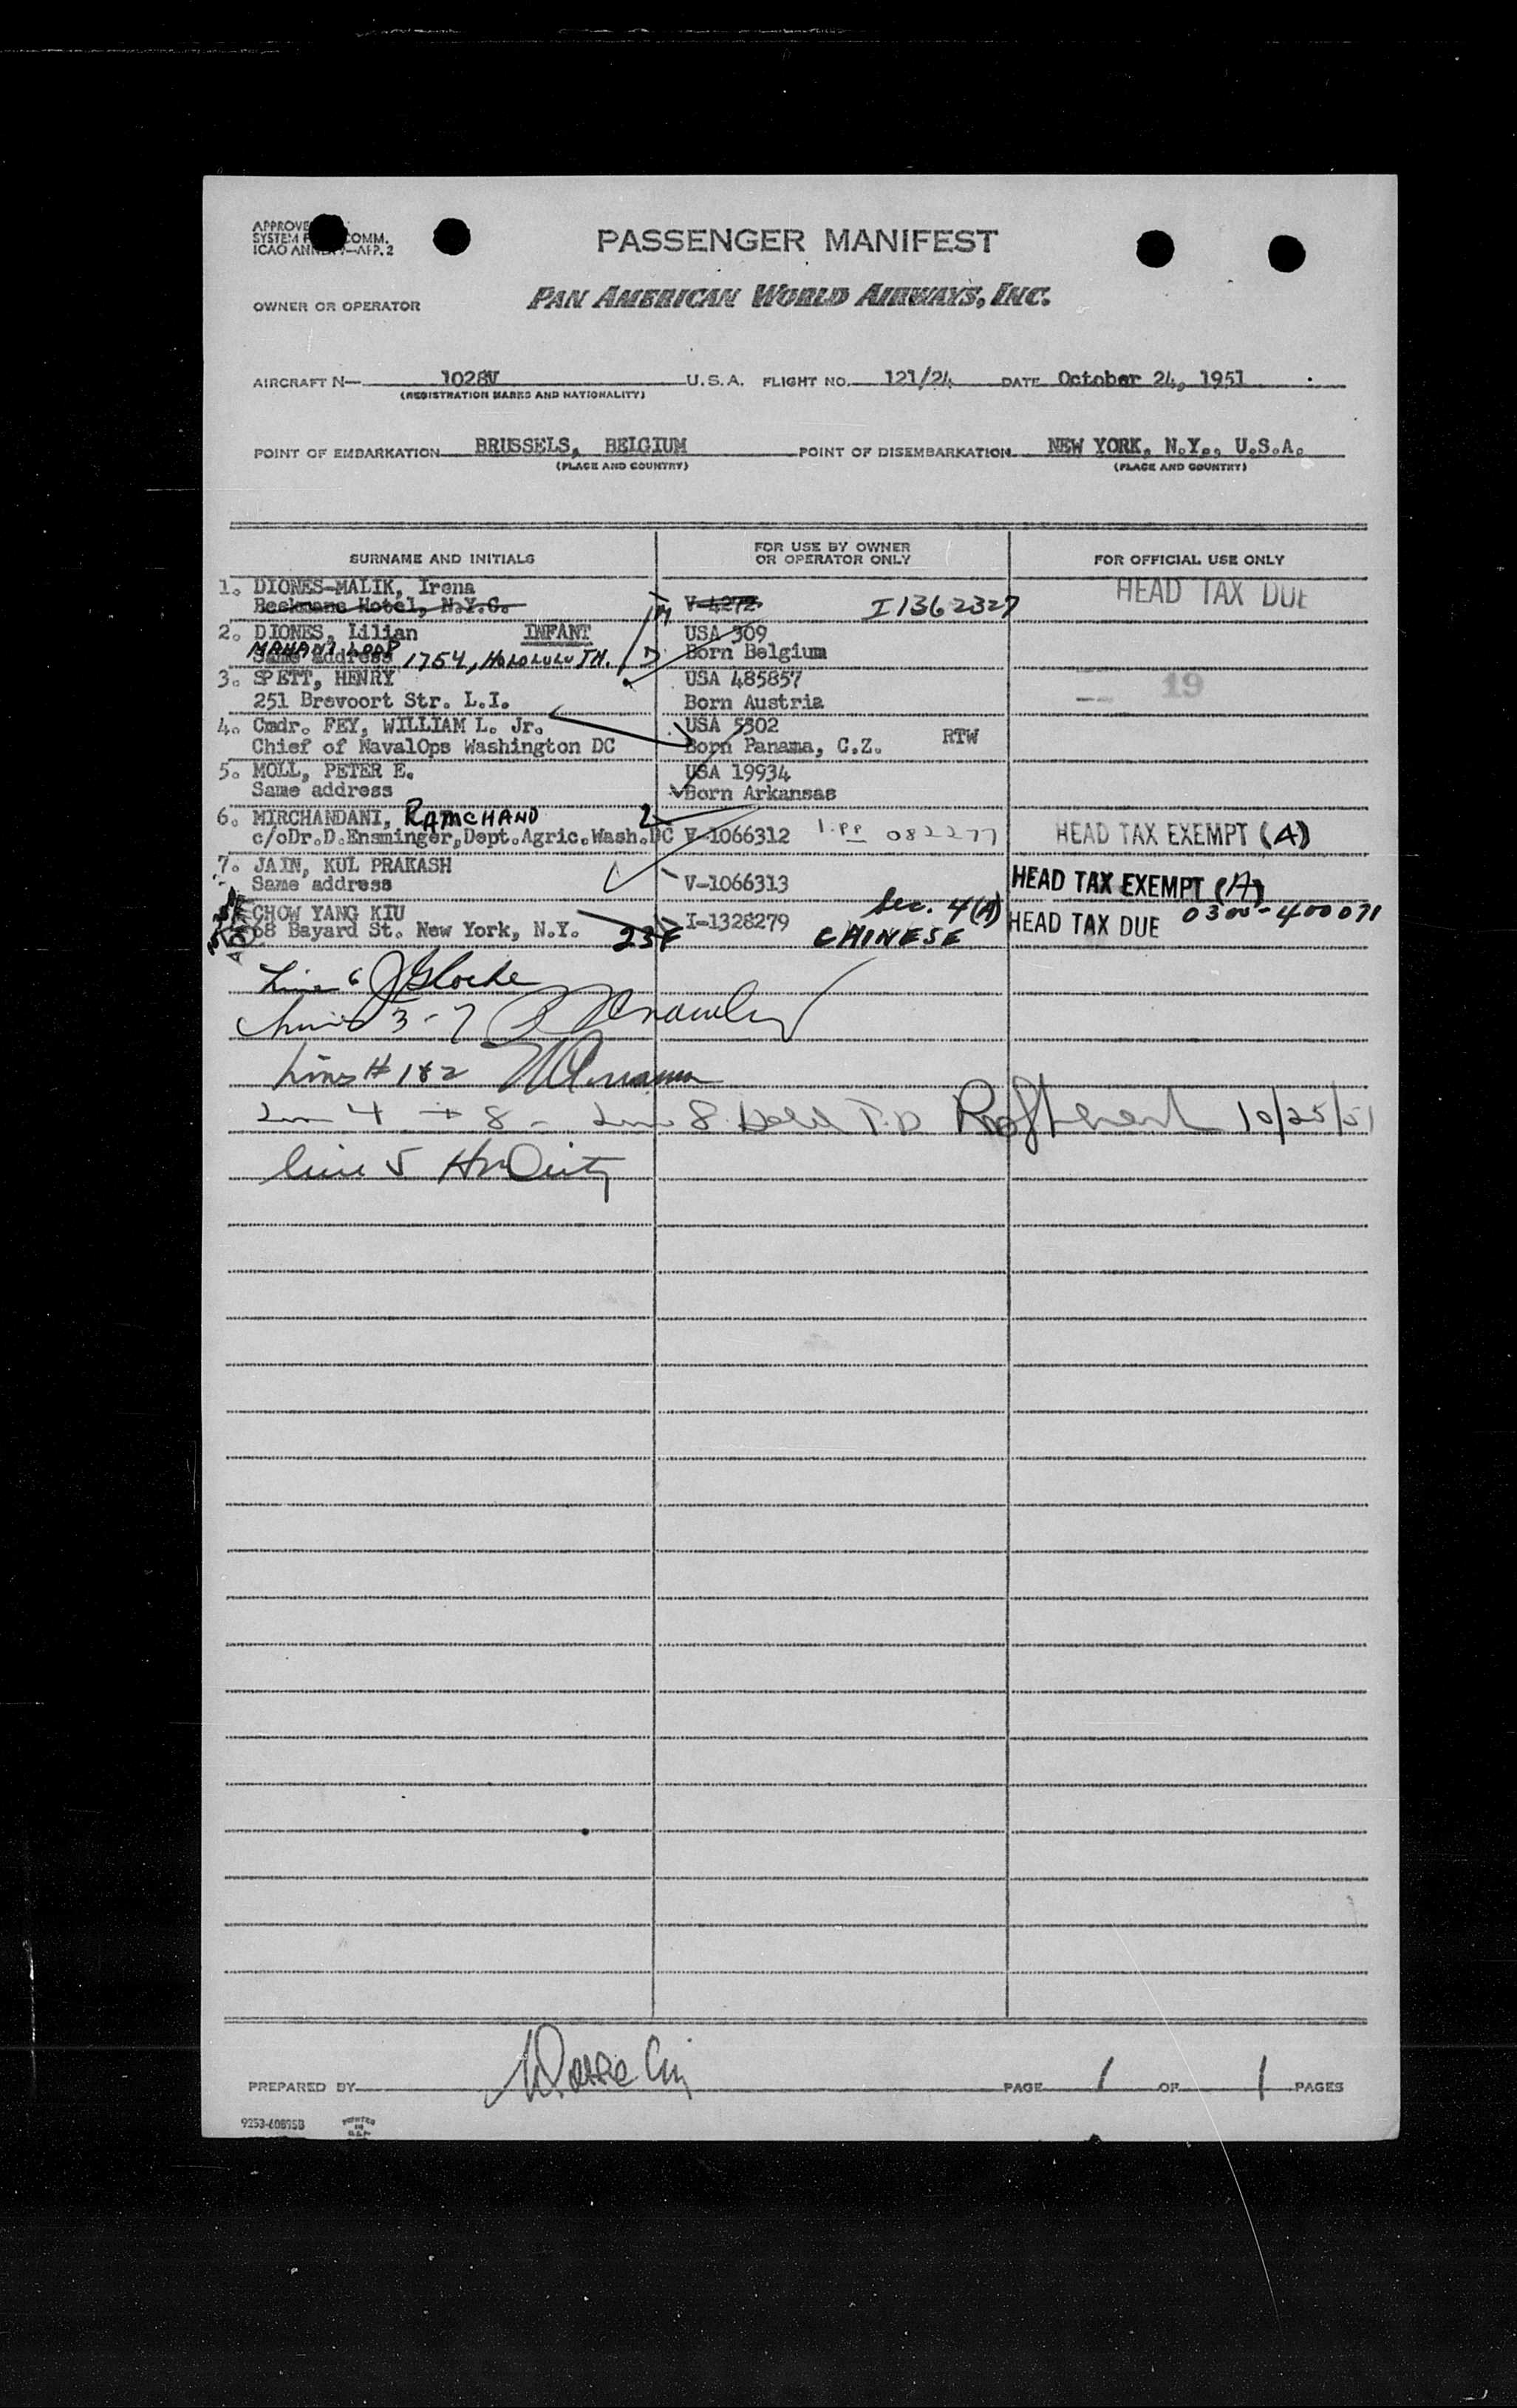 PASSENGER MANIFEST
SYSTEM COMM.
OWNER OR OPERATOR PAN AMERICAN WORLD AIRWAYS, INC.
AIRCRAFT N— 1028V U.S.A. FLIGHT NO. 121/24 DATE October 24, 1951
(REGISTRATION MARKS AND NATIONALITY)
POINT OF EMBARKATION BRUSSELS, BELGIUM POINT OF DISEMBARKATION NEW YORK, N.Y., U.S.A.
(PLACE AND COUNTRY) (PLACE AND COUNTRY)
SURNAME AND INITIALS FOR USE BY OWNER OR OPERATOR ONLY FOR OFFICIAL USE ONLY
1. DIONES-MALIK, Irena HEAD TAX DUE
Beekmans Hotel, N.Y.C. V-4272 I 1362327
2. DIONES, Lilian INFANT USA 309
MAHANI LOOP Same address 1754, HOLOLULU TH. Born Belgium
3. SPETT, HENRY USA 485857 19
251 Brevoort Str. L.I. Born Austria
4. Cmdr. FEY, WILLIAM L. Jr. USA 5302
Chief of NavalOps Washington DC Born Panama, C.Z. RTW
5. MOLL, PETER E. USA 19934
Same address Born Arkansas
6. MIRCHANDANI, RAMCHAND 2
c/oDr.D.Ensminger,Dept.Agric.Wash.DC V-1066312 1.PP 082277 HEAD TAX EXEMPT (A)
7. JAIN, KUL PRAKASH
Same address V-1066313 HEAD TAX EXEMPT (A)
CHOW YANG KIU I-1328279 Sec. 4(A) HEAD TAX DUE 0300-400071
68 Bayard St. New York, N.Y. 23F CHINESE
Line 6
3-7
Lines # 1&2
4 + 8 - 8 Held 10/25/51
line 5
PREPARED BY PAGE 1 OF 1 PAGES
9253-40895B PRINTED IN U.S.A.